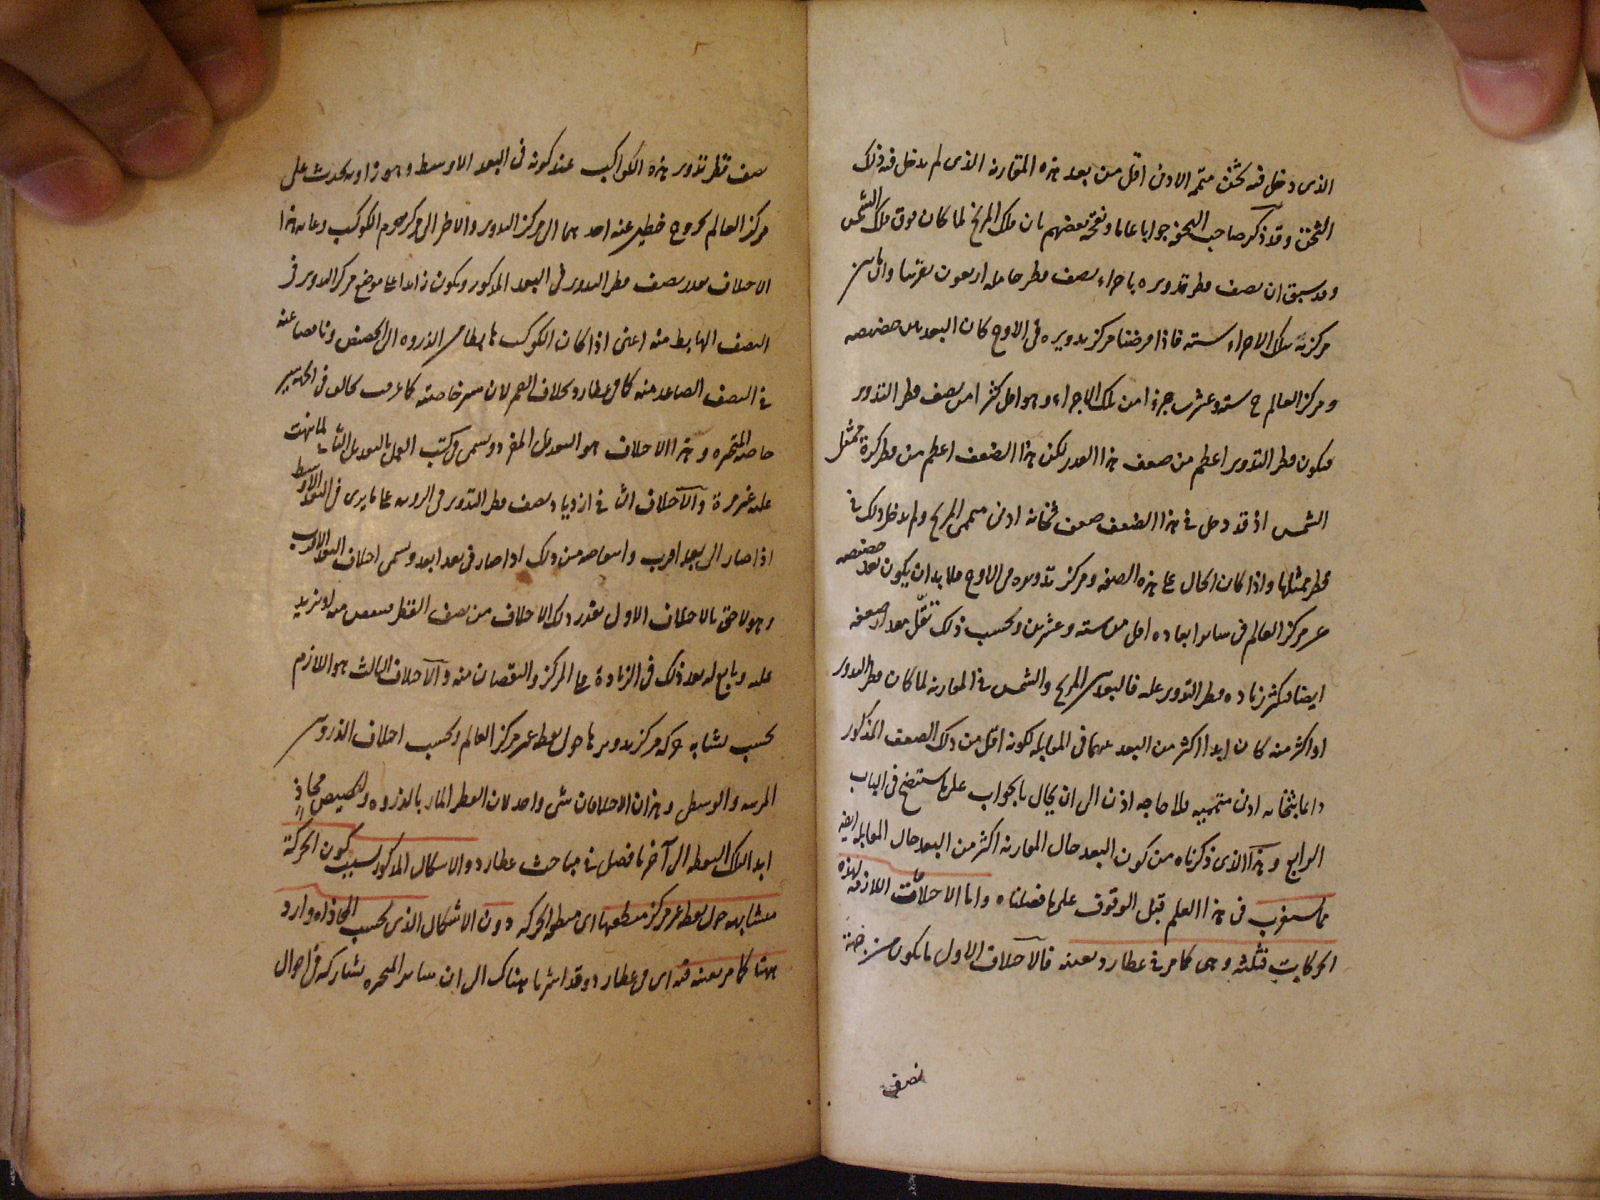 الذى دخل فيه كثخن متمم الادنى اقل من بعد هذه المقارنة الذى لم يدخل فيه ذلك
الثخن وقد ذكر صاحب التحفة جوابا عاما ونقحه بعضهم بان فلك المريخ لما كان فوق فلك الشمس
وقد سبق ان نصف قطر تدويره باجزاء نصف قطر حامله اربعون تقريبا وان ما بين
مركزيه بتلك الاجزاء ستة فاذا فرضنا مركز تدويره فى الاوج كان البعد بين حضيضه
ومركز العالم ح ستة وعشرين جزءا من تلك الاجزاء وهو اقل كثيرا من نصف قطر التدوير
فيكون قطر التدوير اعظم من ضعف هذا القدر لكن هذا الضعف اعظم من قطر كرة ممثل
الشمس اذ قد دخل فى هذا الضعف ضعف ثخانة ادنى متممى المريخ ولم يدخل ذلك فى
قطر ممثلها واذا كان الحال على هذه الصفة ومركز تدويره فى الاوج فلا بد ان يكون بعد حضيضه
عن مركز العالم فى سائر ابعاده اقل من ستة وعشرين وبحسب ذلك تقل مقدار ضعفه
ايضا فيكثر زيادة قطر التدوير عليه فالبعد بين المريخ والشمس فى المقارنة لما كان قطر التدوير
او اكثر منه كان ابدا اكثر من البعد بينهما فى المقابلة لكونه اقل من ذلك الضعف المذكور
دائما بثخانة ادنى متمميه فلا حاجة اذن الى ان يحال بالجواب على ما سيتضح فى الباب
الرابع وهذا الذى ذكرناه من كون البعد حال المقارنة اكثر من البعد حال المقابلة ايضا
مما يستغرب فى هذا العلم قبل الوقوف على ما فصلناه واما الاختلافات اللازمة لهذه
الحركات فثلثة وهى كما مر فى عطارد بعينه فالاختلاف الاول ما يكون من جهة
نصف
نصف قطر تدوير هذه الكواكب عند كونه فى البعد الاوسط وهو زاوية يحدث على
مركز العالم بخروج خطين عنه احدهما الى مركز التدوير والاخر الى مركز جرم الكوكب وغاية هذا
الاختلاف بقدر نصف قطر التدوير فى البعد المذكور ويكون زائدا على موضع مركز التدوير فى
النصف الهابط منه اعنى اذا كان الكوكب هابطا من الذروة الى الحضيض وناقصا عنه
فى النصف الصاعد منه كما فى عطارد بخلاف القمر لان سير خاصته كما عرفت مخالف فى الجهة لسير
خاصة المتحيرة وهذا الاختلاف هو التعديل المفرد ويسمى فى كتب العمل بالتعديل الثانى لما نبهت
عليه غير مرة والاختلاف الثانى ازدياد نصف قطر التدوير فى الرؤية على ما يرى فى البعد الاوسط
اذا صار الى بعد اقرب وانتقاصه من ذلك اذا صار فى بعد ابعد ويسمى اختلاف البعد الاقرب
وهو لاحق بالاختلاف الاول بقدر ذلك الاختلاف من نصف القطر فينقص منه او يزيد
عليه وتابع له بعد ذلك فى الزيادة على المركز والنقصان منه والاختلاف الثالث هو اللازم
بحسب تشابه حركة مركز تدويرها حول نقطة غير مركز العالم وبحسب اختلاف الذروتين
المرئية والوسطى وهذان الاختلافان شئ واحد لان القطر المار بالذروة والحضيض محاذ
ابدا لتلك النقطة الى آخر ما فصل فى مباحث عطارد والاشكال المذكور بسبب كون الحركة
متشابهة حول نقطة غير مركز منطقتها اى منطقة الحركة دون الاشكال الذى بحسب المحاذاة وارد
ههنا كما مر بعينه فيه اى فى عطارد وقد اشرنا هناك الى ان سائر المتحيرة تشاركه فى احوال